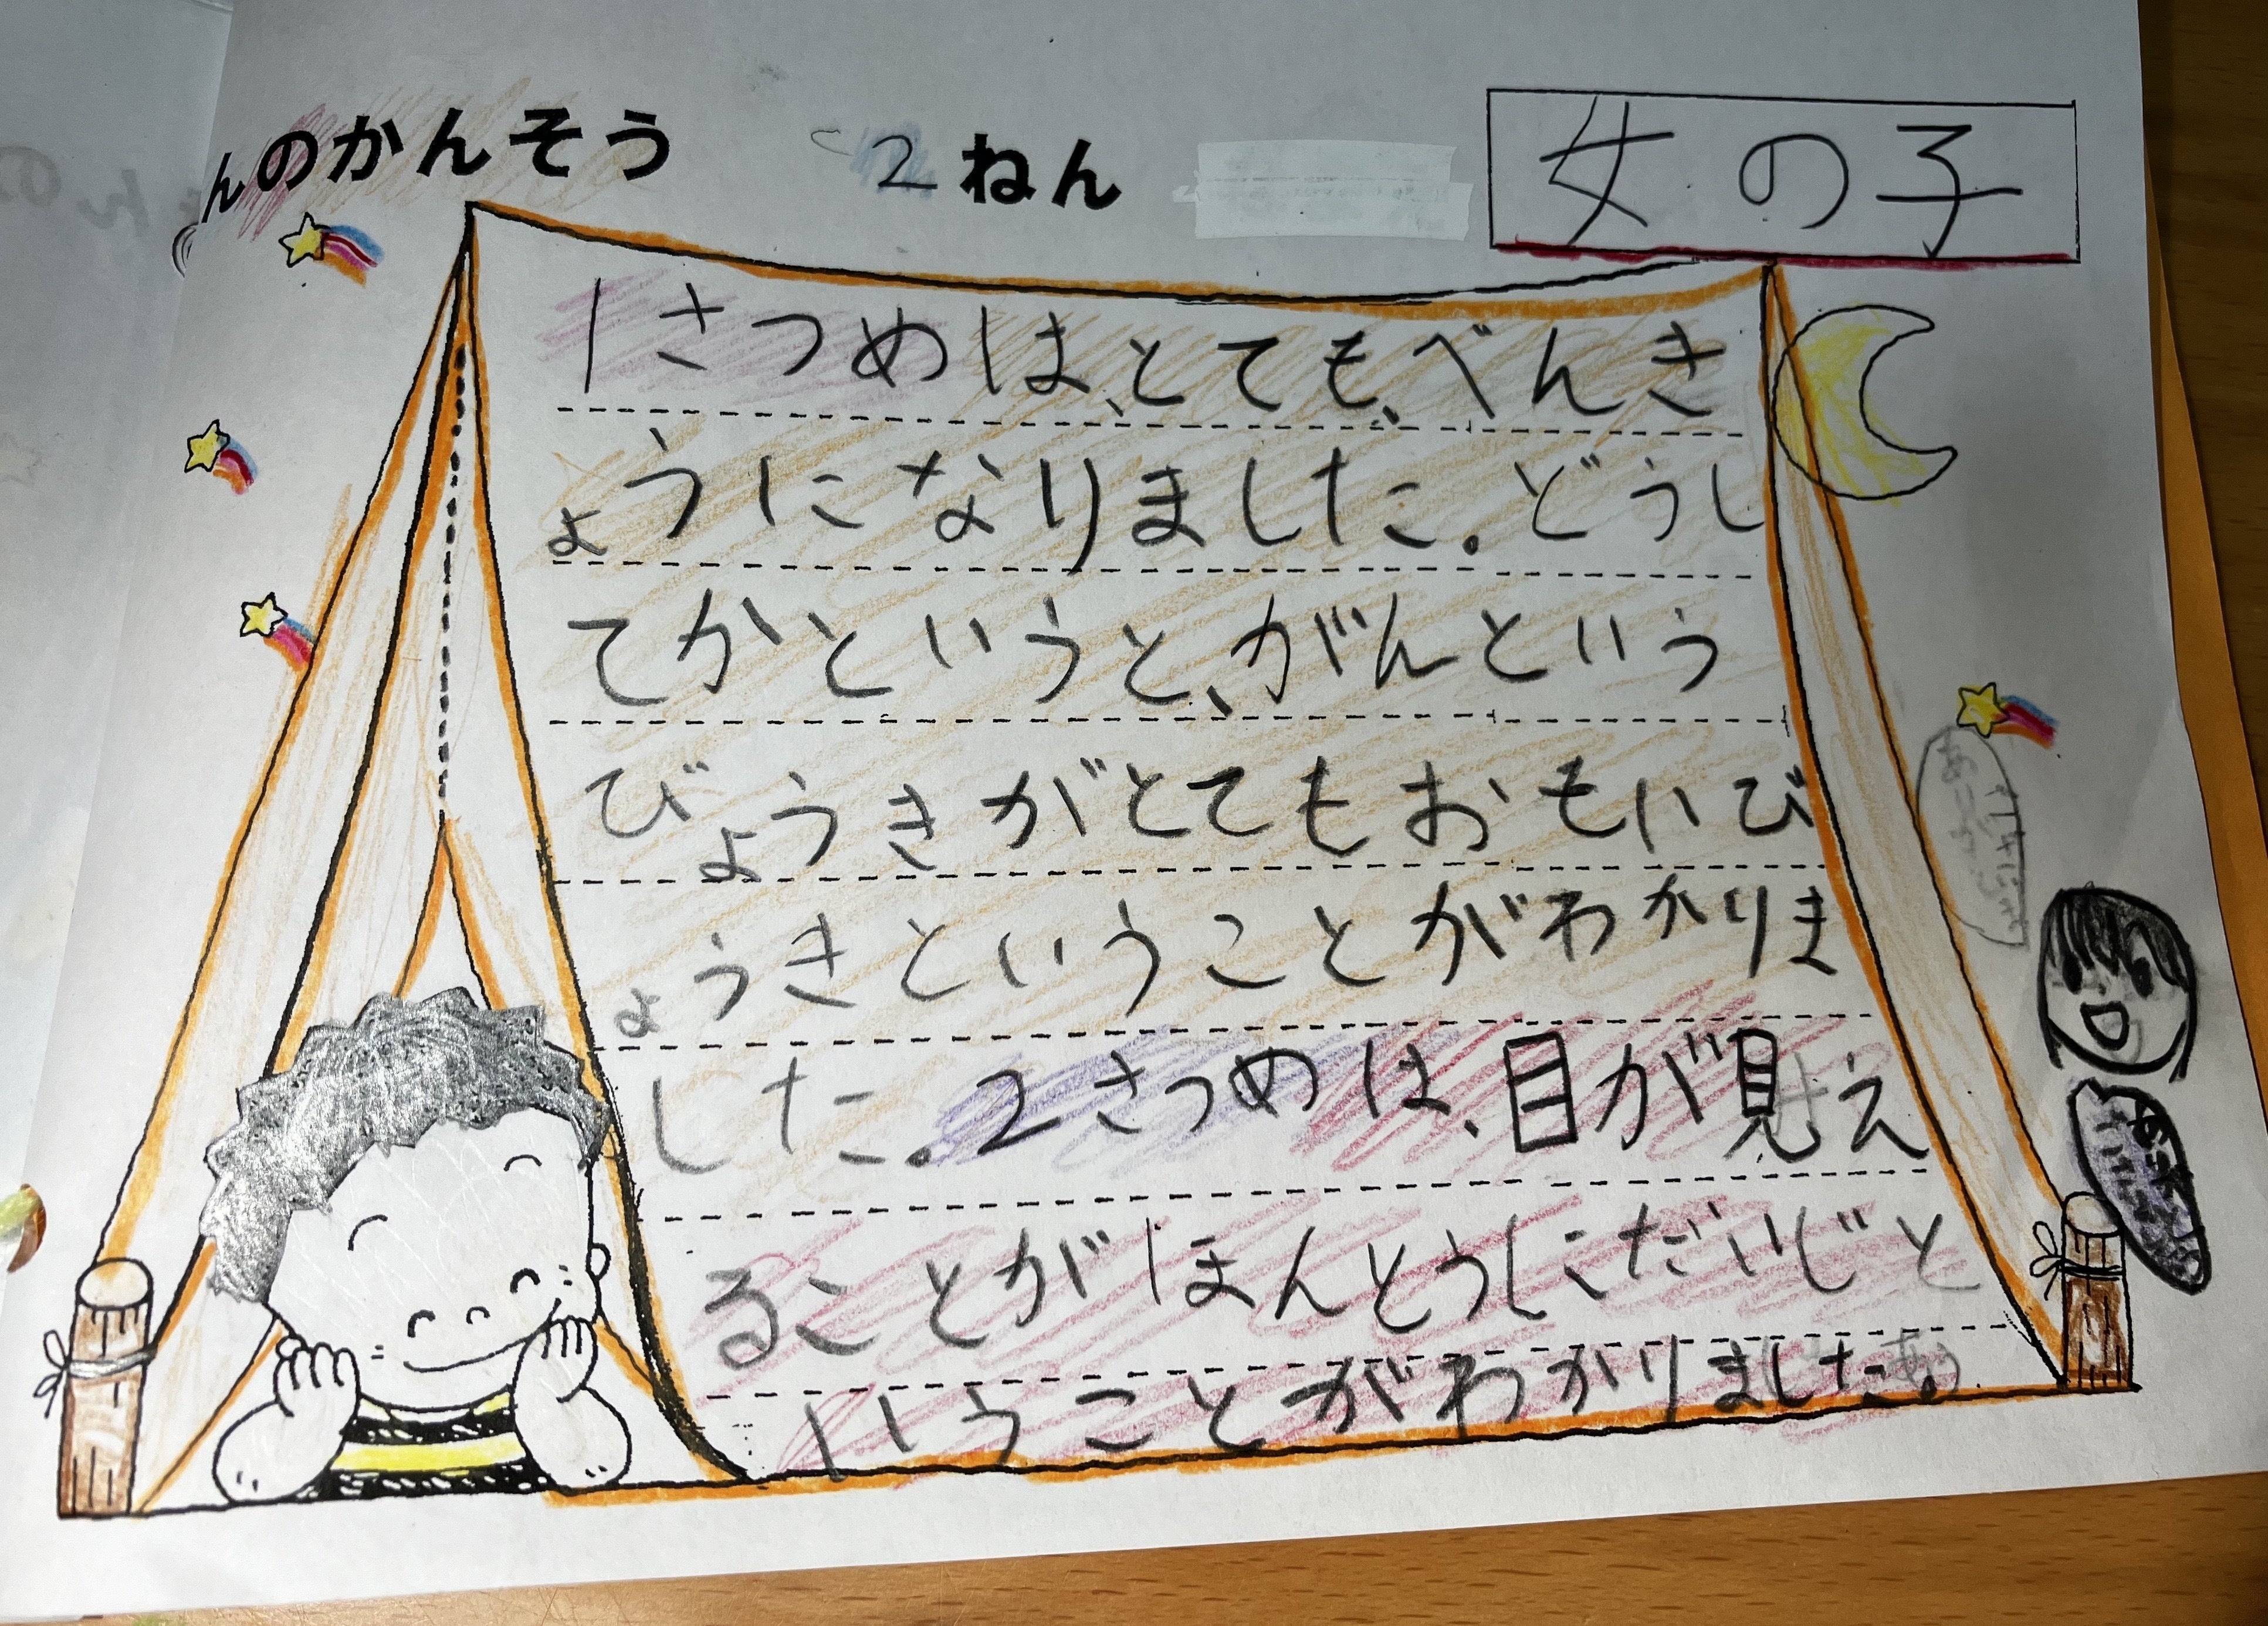 んのかんそう 2ねん
女の子
1さつめは、とても、べんき
ょうになりました。どうし
てかというと、がんという
びょうきがとてもおもいび
ょうきということがわかりま
した。2さつめは、目が見え
ることがほんとうにだいじと
いうことがわかりました。